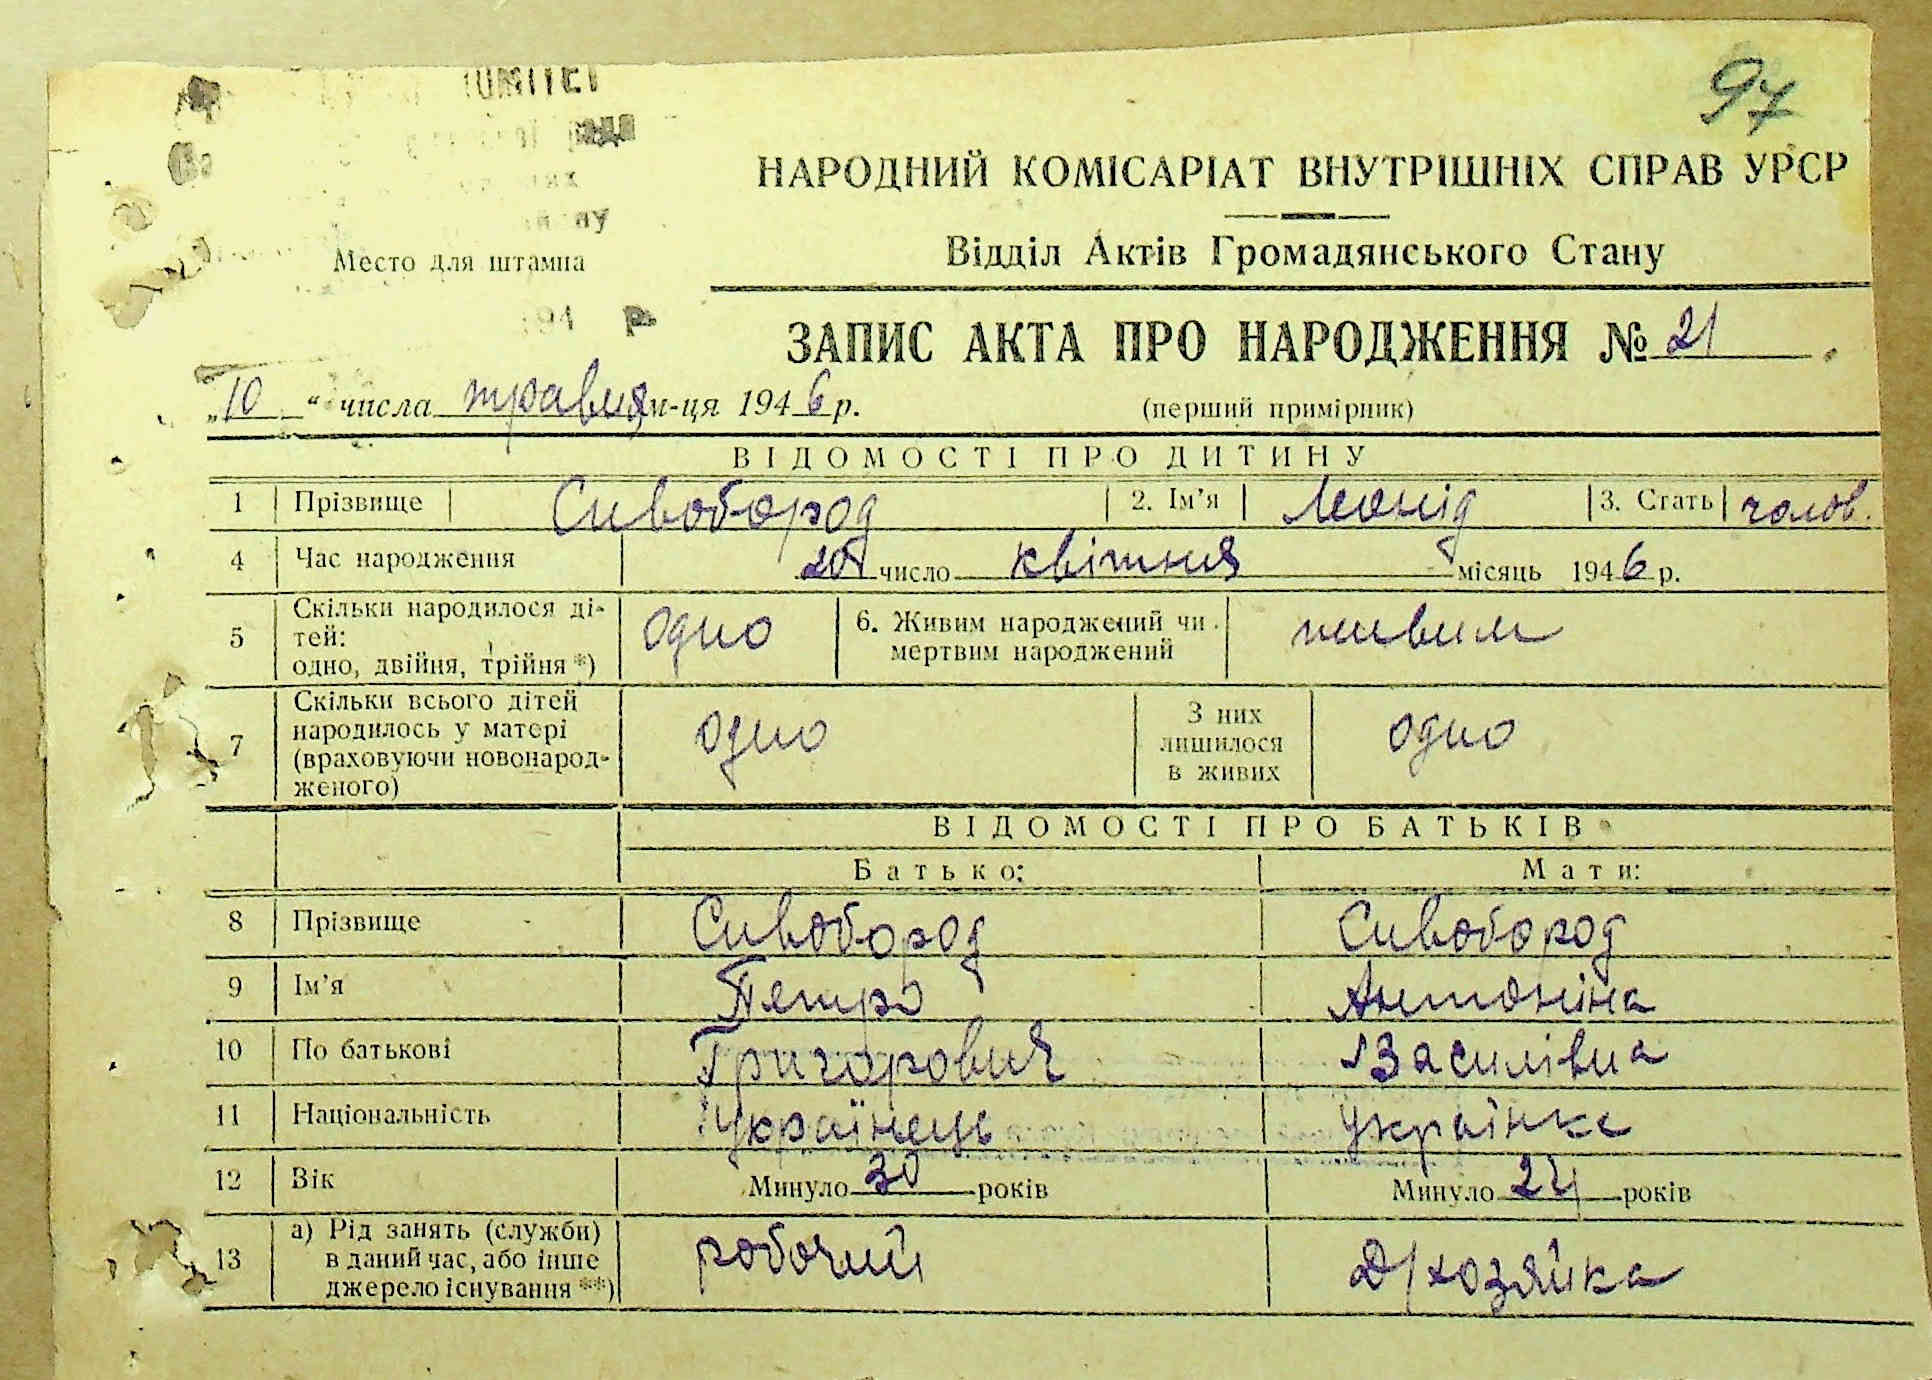 97
НАРОДНИЙ КОМІСАРІАТ ВНУТРІШНІХ СПРАВ УРСР
Відділ Актів Громадянського Стану
Место для штампа
194 р.
ЗАПИС АКТА ПРО НАРОДЖЕННЯ № 21
„10“ числа травня м-ця 1946 р.
(перший примірник)
ВІДОМОСТІ ПРО ДИТИНУ
1 Прізвище Сивобород 2. Ім’я Леонід 3. Стать чолов.
4 Час народження 20 число квітня місяць 1946 р.
5 Скільки народилося ді-
тей:
одно, двійня, трійня *) одно 6. Живим народжений чи
мертвим народжений живим
7 Скільки всього дітей
народилось у матері
(враховуючи новонарод-
женого) одно З них
лишилося
в живих одно
ВІДОМОСТІ ПРО БАТЬКІВ
Батько: Мати:
8 Прізвище Сивобород Сивобород
9 Ім’я Петро Антоніна
10 По батькові Григорович Василівна
11 Національність українець українка
12 Вік Минуло 30 років Минуло 24 років
13 а) Рід занять (служби)
в даний час, або інше
джерело існування **) робочий Д/хозяйка